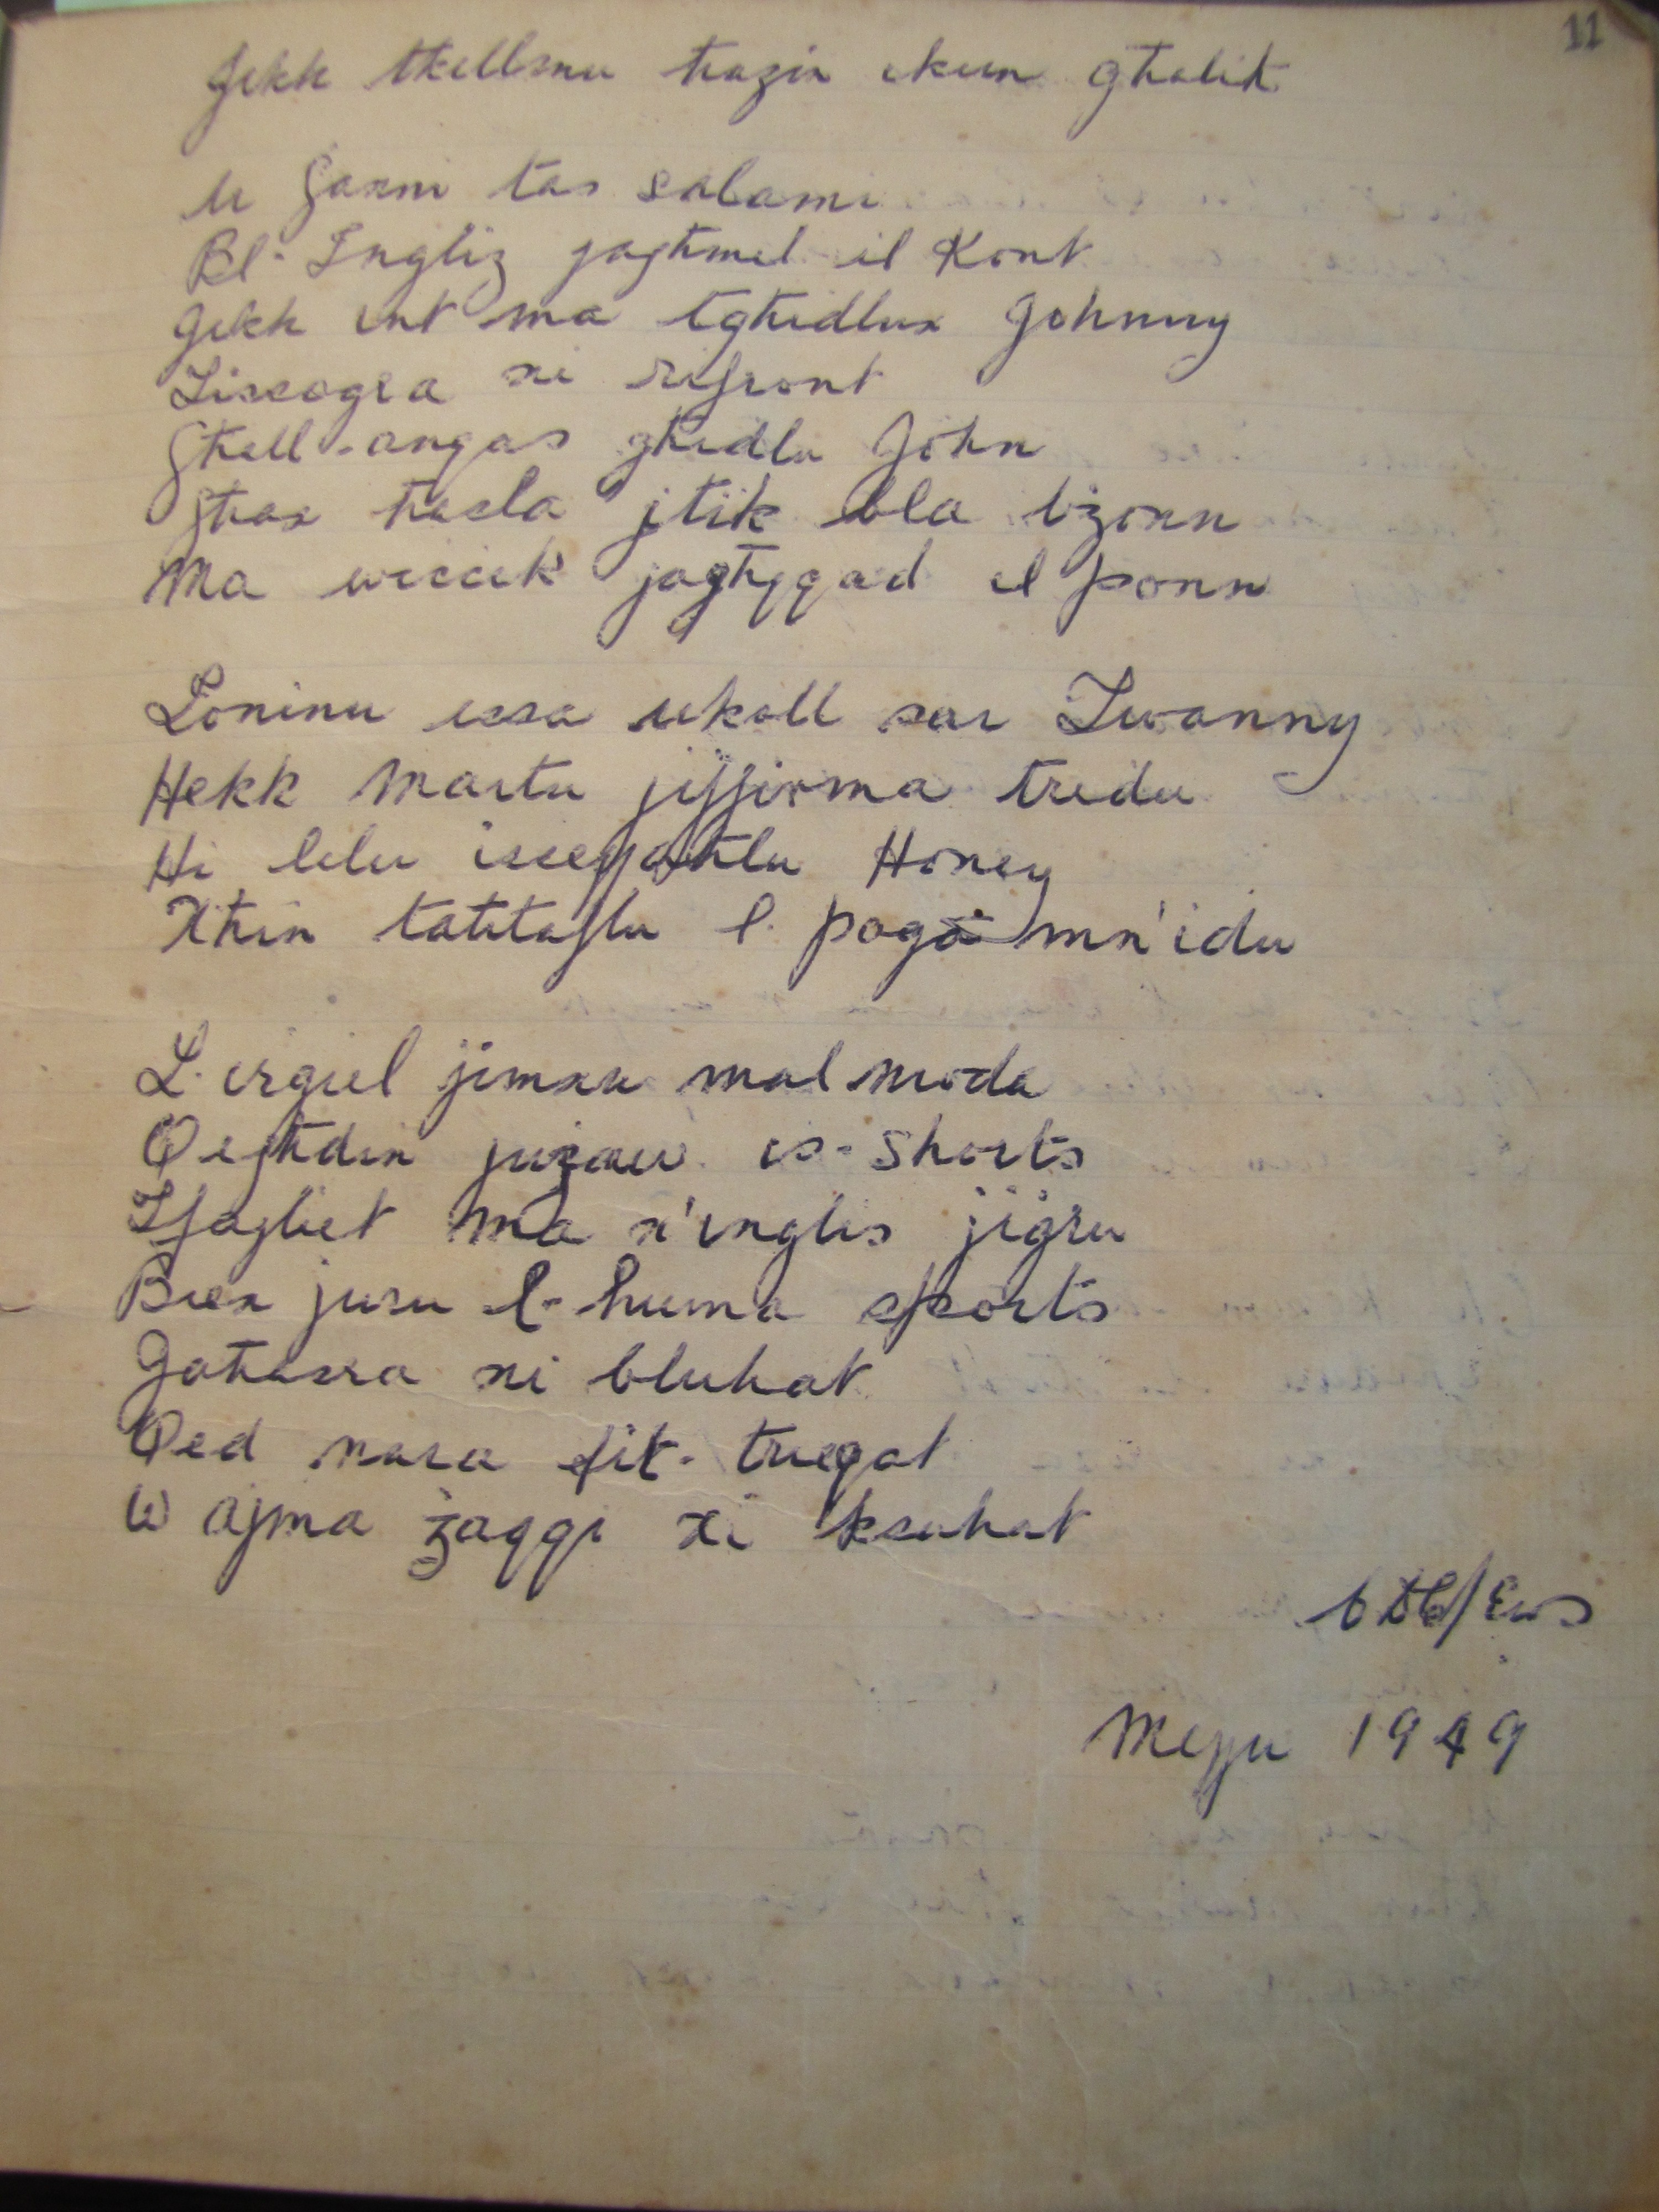 11
Jekk tkellmu ħazin ikun għalik
U Ġanni tas salami
Bl-Ingliz jagħmel il Kont
Jekk int ma tgħidlux Johnny
Tissogra xi xifront
Għall-anqas għidlu John
Għax ħasla jtik bla bżonn
Ma wiccek jagħqqad il ponn
Loninu issa ukoll sar Iwanny
Hekk Martu jiffirma tridu
Hi lilu issejjaħlu Honey
Xħin taħtaflu l. paga mn'idu
L. irgiel jimxu mal moda
Qegħdin jużaw is-Shorts
Tfagliet ma x'inglis jiġru
Biex juru l-huma sports
Jaħasra xi bluhat
Qed nara fit-trieqat
W ajma żaqqi xi ksuhat
Mejju 1949